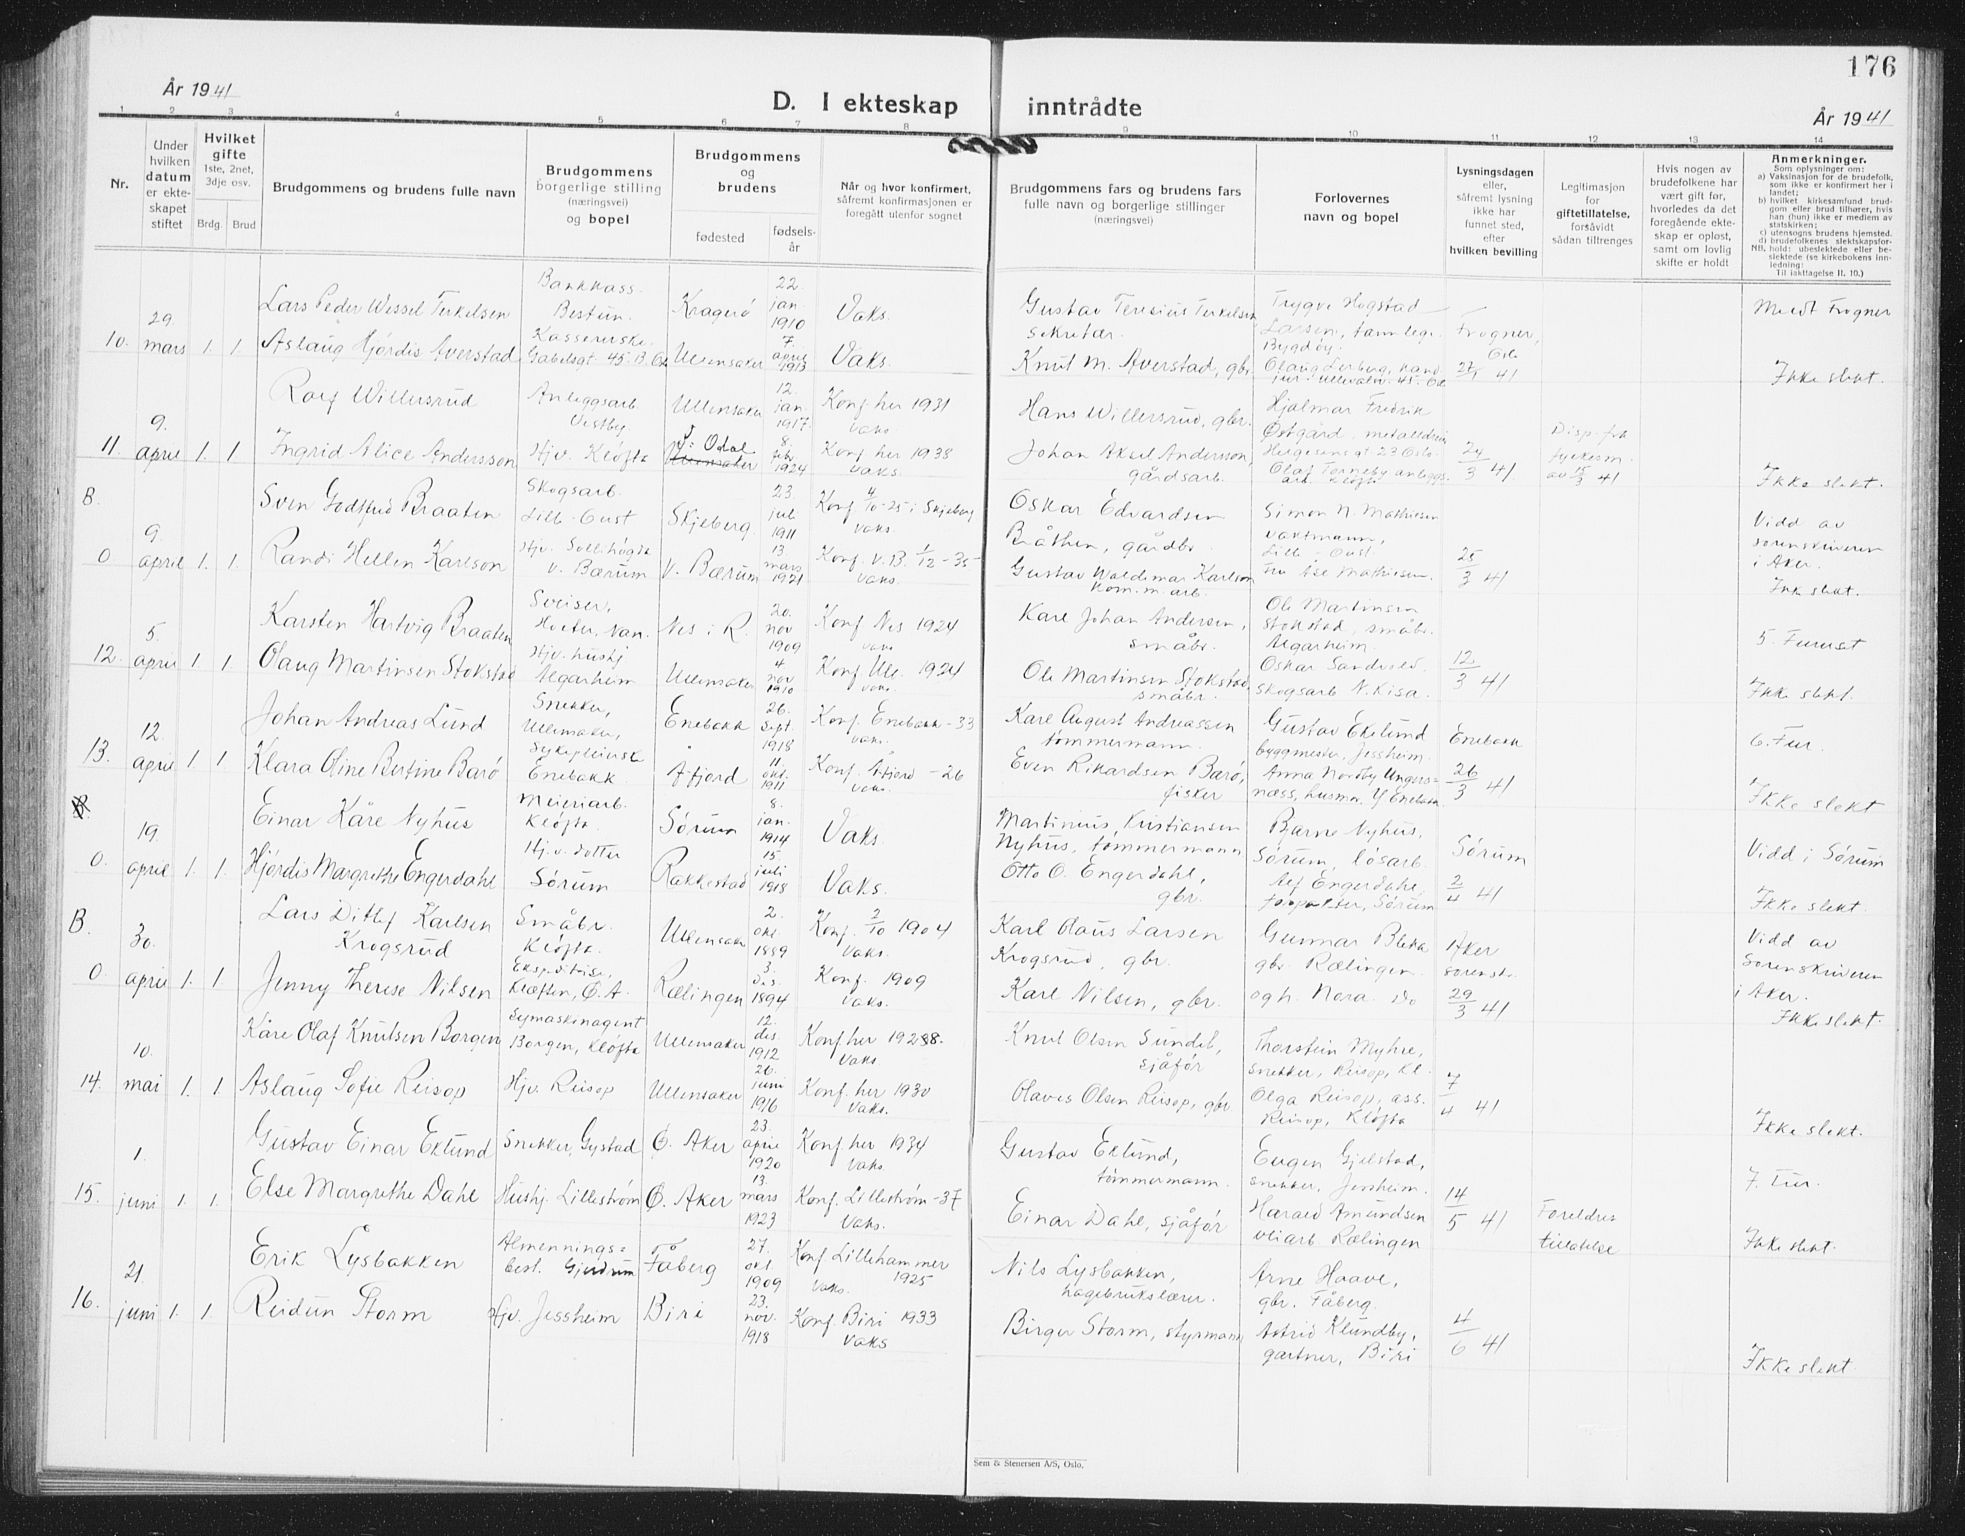 176
År 1941
D. I ekteskap inntrådte
År 1941
1 2 3 4 5 6 7 8 9 10 11 12 13 14
Nr.
Under hvilken datum er ekteskapet stiftet
Hvilket gifte 1ste, 2net, 3dje osv.
Brdg. Brud
Brudgommens og brudens fulle navn
Brudgommens borgerlige stilling (næringsvei) og bopel
Brudgommens og brudens
fødested
fødselsår
Når og hvor konfirmert, såfremt konfirmasjonen er foregått utenfor sognet
Brudgommens fars og brudens fars fulle navn og borgerlige stillinger (næringsvei)
Forlovernes navn og bopel
Lysningsdagen eller, såfremt lysning ikke har funnet sted, efter hvilken bevilling
Legitimasjon for giftetillatelse, forsåvidt sådan tiltrenges
Hvis nogen av brudefolkene har vært gift før, hvorledes da det foregående ekteskap er opløst, samt om lovlig skifte er holdt
Anmerkninger.
Som oplysninger om:
a) Vaksinasjon for de brudefolk, som ikke er konfirmert her i landet;
b) hvilket kirkesamfund brudgom eller brud tilhører, hvis han (hun) ikke er medlem av statskirken;
c) utensogns brudens hjemsted.
d) brudefolkenes slektskapsforhold: ubeslektede eller beslektede (se kirkebokens innledning:
NB.
Til iakttagelse II. 10.)
10. 29. mars 1. 1.
Lars Peder Wessel Terkelsen
Bankkass. Bestun.
Kragerø
22. jan. 1910
Vaks.
Gustav Teresius Terkelsen sekretær.
Trygve Hogstad Larsen, tannlege. Bygdøy.
Frogner, Oslo 27/1 41
Meldt Frogner
Aslaug Hjördis Averstad
Kassererske. Gabelsgt 45. B. Os
Ullensaker
7. april 1913
Vaks.
Knut M. Averstad, gbr.
Ikke slekt.
11. 9. april 1. 1.
Rolf Willersrud
Anleggsarb. Vestby.
Ullensaker
12. jan. 1917.
Konf her 1931 vaks.
Hans Willersrud, gbr.
Hjalmar Fredrik Østgård, metalldreier Helgesens gt 23 Oslo.
24/3 41.
Disp. fra fylkesm. av 15/3 41
Ingrid Alice Andersson
Hjv. Kløfta
J. Odal Ullensaker
8. febr 1924
Konf her 1938 vaks.
Johan Axel Andersson, gårdsarb.
Olaf Torneby anleggsarb. Kløfta
Ikke slekt.
B. 9. april 1. 1.
Sven Godtfred Braaten
Skogsarb. Lilb-Oust
Skjeberg
23. juli 1911
Konf 4/10-25 i Skjeberg vaks.
Oskar Edvardsen Bråthen, gårdbr.
Simon N. Mathiesen vaktmann,
25/3 41
Vidd av sorenskriveren i Aker.
O
Randi Hellen Karlson
Hjv. Sollihøgda V. Bærum
V. Bærum
13. mars 1921
Konf. V. B. 1/12-35 vaks.
Gustav Waldemar Karlson kom. m. arb.
Fru Åse Mathiesen.
Ikke slekt.
12. 5. april 1. 1.
Karsten Hartvig Braaten
Sveiser,
Nes i R.
20. nov 1909
Konf Nes 1924 vaks
Karl Johan Andersen, småbr.
Ole Martinsen Stokstad, småbr. Algarheim.
12/3 41
5. Furuset
Olaug Martinsen Stokstad
Hjv. hushj Algarheim
Ullensaker
4 nov 1910
Konf Ull. 1924 vaks.
Ole Martinsen Stokstad, småbr.
Oskar Sandvold. skogsarb N. Kisa.
Ikke slekt.
13. 12. april 1. 1.
Johan Andreas Lund
Snekker, Ullensaker,
Enebakk
26. Sept. 1918
Konf. Enebakk -33 vaks.
Karl August Andreassen tømmermann.
Gustav Eklund byggmester, Jessheim.
Enebakk 26/3 41
6. Fur.
Klara Oline Bertine Barø
Sykepleierske Enebakk
Åfjord
11. okt. 1911
Konf. Åfjord -26 vaks.
Even Rikardsen Barø, fisker
Anna Nordby Ungersnæss, husmor. Y Enebakk.
Ikke slekt
B 19. april 1. 1.
Einar Kåre Nyhus
Meieriarb. Kløfta.
Sørum
8. jan. 1914
Vaks.
Martinius Kristiansen Nyhus, tømmermann
Bjarne Nyhus, Sørum, løsarb.
Sørum 2/4 41
Vidd i Sørum
O.
Hjördis Margrethe Engerdahl
Hj.v. dotter Sørum
Rakkestad
15. juli 1918
Vaks.
Otto O. Engerdahl, gbr.
Alf Engerdahl, Sørum
Ikke slekt.
B. 30. april 1. 1
Lars Ditlef Karlsen Krogsrud
Småbr. Kløfta.
Ullensaker
2. okt. 1889
Konf. 2/10 1904 Vaks.
Karl Olaus Larsen Krogsrud, gbr.
Gunnar Bleka gbr. Rælingen.
Aker sorenskr. 29/3 41
Vidd av Sorenskriveren i Aker.
O
Jenny Therese Nilsen
Ekspeditrise, Kløften, Ø. A.
Rælingen
3. des. 1894
Konf. 1909 vaks.
Karl Nilsen, gbr.
og h. Nora. Do
Ikke slekt.
14. 10. mai 1. 1
Kåre Olaf Knutsen Borgen
Symaskinagent Borgen, Kløfta
Ullensaker
12. des. 1912
Konf her 1928. Vaks
Knut Olsen Sundeb, sjåfør
Thorstein Myhre, snekker, Reisop, Kl.
7/4 41
Aslaug Sofie Reisop
Hjv. Reisop
Ullensaker
26. juni 1916
Konf. her 1930 vaks.
Olaves Olsen Reisop, gbr
Olga Reisop, ass. Reisop, Kløfta
Ikke slekt.
15. 1. juni 1. 1.
Gustav Einar Eklund
Snekker, Gystad
Ø. Aker
23. april 1920
Konf her 1934 vaks.
Gustav Eklund, tømmermann.
Eugen Gjelstad, snekker, Jessheim.
14/5 41
7. Fur.
Else Margrethe Dahl
Hushj. Lillestrøm
Ø. Aker
13. mars 1923
Konf. Lillestrøm -37 Vaks.
Einar Dahl, sjåfør
Harald Amundsen Rælingen
Foreldres tillatelse
Ikke slekt.
16. 21. juni 1. 1.
Erik Lysbakken
Almenningsbest. Gjerdrum
Fåberg
27. okt. 1909
Konf Lillehammer 1925 Vaks.
Nils Lysbakken, hagebrukslærer.
Arne Haave, gbr. Fåberg.
4/6 41
Reidun Storm
Hjv. Jessheim
Biri
23. nov. 1918
Konf. Biri 1933 Vaks
Birger Storm, styrmann
Astrid Klundby, gartner, Biri
Ikke slekt.
Sem & Stenersen A/S, Oslo.